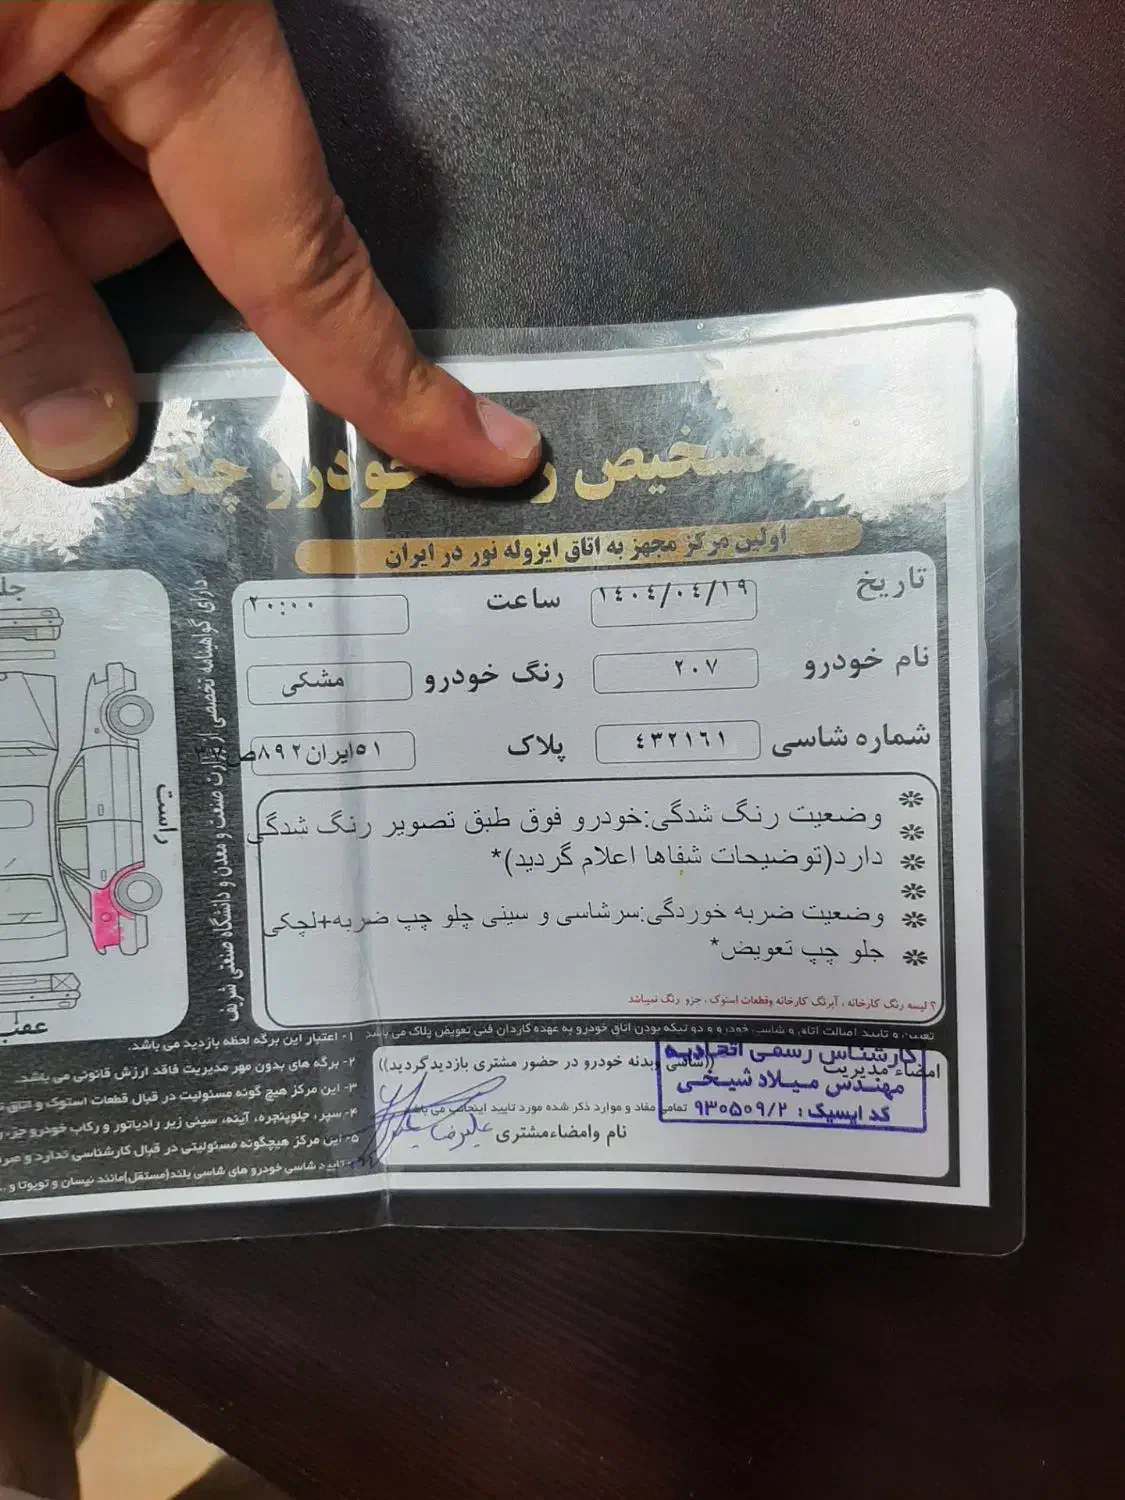 تشخیص خودرو
اولین مرکز مجهز به اتاق ایزوله نور در ایران
تاریخ ۱۴۰۴/۰۴/۱۹ ساعت ۲۰:۰۰
نام خودرو ۲۰۷ رنگ خودرو مشکی
شماره شاسی ۴۳۲۱۶۱ پلاک ۵۱ایران۸۹۲ص
وضعیت رنگ شدگی:خودرو فوق طبق تصویر رنگ شدگی
دارد(توضیحات شفاها اعلام گردید)*
وضعیت ضربه خوردگی:سرشاسی و سینی جلو چپ ضربه+لچکی
جلو چپ تعویض*
؟ لیسه رنگ کارخانه ، آبرنگ کارخانه وقطعات استوک ، جزو رنگ نمیباشد
تعیین و تایید اصالت اتاق و شاسی خودرو و دو تیکه بودن اتاق خودرو به عهده کاردان فنی تعویض پلاک می باشد
((شاسی وبدنه خودرو در حضور مشتری بازدید گردید))
امضاء مدیریت
تمامی مفاد و موارد ذکر شده مورد تایید اینجانب می باشد
نام وامضاءمشتری
علیرضا
کارشناس رسمی اتحادیه
مهندس میلاد شیخی
کد ایسیک: ۹۳۰۵۰۹/۲
دارای گواهینامه تخصصی از وزارت صنعت و معدن و دانشگاه صنعتی شریف
راست
عقب
۱- اعتبار این برگه لحظه بازدید می باشد.
۲- برگه های بدون مهر مدیریت فاقد ارزش قانونی می باشد.
۳- این مرکز هیچ گونه مسئولیت در قبال قطعات استوک و اتاق
۴- سپر، جلوپنجره، آینه، سینی زیر رادیاتور و رکاب خودرو جزء
۵- این مرکز هیچگونه مسئولیتی در قبال کارشناسی ندارد و
تایید شاسی خودرو های شاسی بلند(مستقل)مانند نیسان و تویوتا و ...